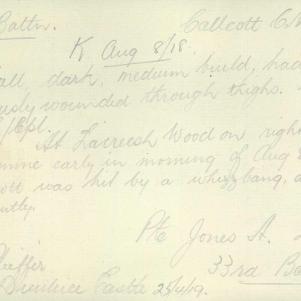 Battn. Callcott C.
K Aug 8/18.
all, dark, medium build, had
usly wounded through thighs.
At Lacreesh Wood on right
early in morning of Aug
ott was hit by a whizzbang, a
ntly.
Pte Jones A.
33rd Ba
Castle 25/4/19.